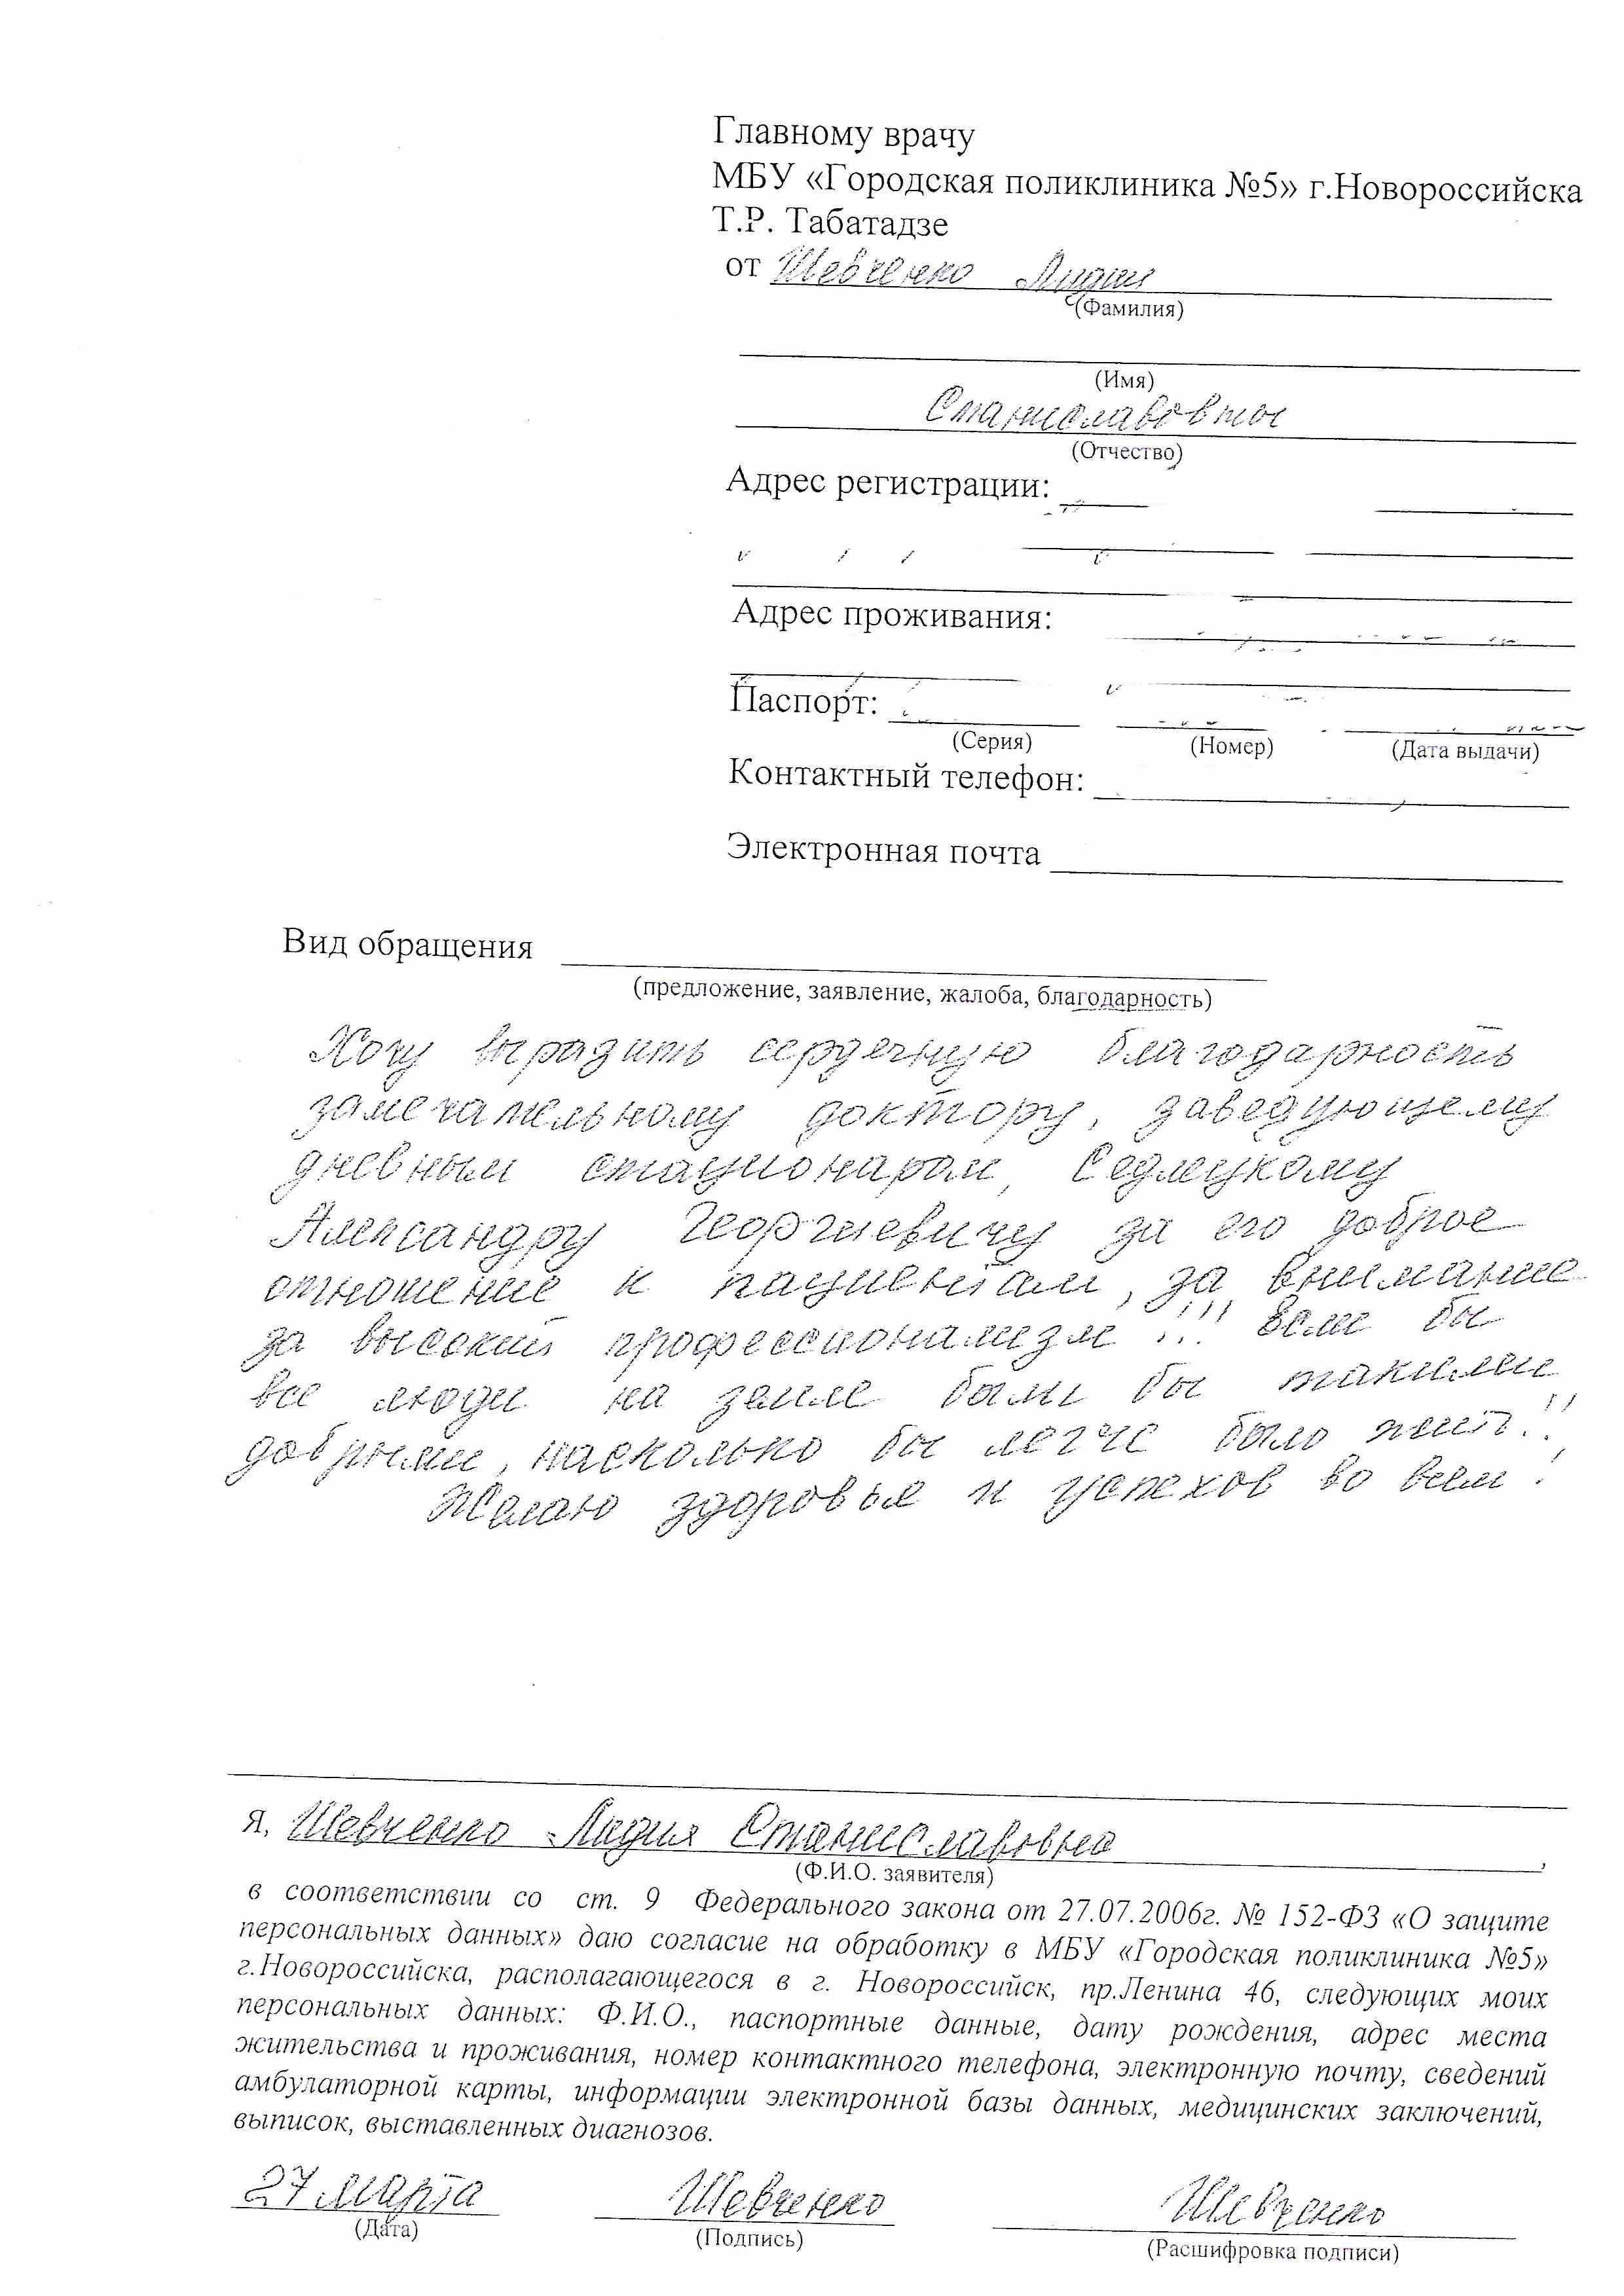 Главному врачу
МБУ «Городская поликлиника №5» г.Новороссийска
Т.Р. Табатадзе
от Шевченко Лидии
(Фамилия)
(Имя)
Станиславовны
(Отчество)
Адрес регистрации:
Адрес проживания:
Паспорт:
(Серия) (Номер) (Дата выдачи)
Контактный телефон:
Электронная почта
Вид обращения
(предложение, заявление, жалоба, благодарность)
Хочу выразить сердечную благодарность
замечательному доктору, заведующему
дневным стационаром, Седлецкому
Александру Георгиевичу за его доброе
отношение к пациентам, за внимание
за высокий профессионализм!!! Если бы
все люди на земле были бы такими
добрыми, насколько бы легче было жить!!
Желаю здоровья и успехов во всем!
Я, Шевченко Лидия Станиславовна,
(Ф.И.О. заявителя)
в соответствии со ст. 9 Федерального закона от 27.07.2006г. № 152-ФЗ «О защите
персональных данных» даю согласие на обработку в МБУ «Городская поликлиника №5»
г.Новороссийска, располагающегося в г. Новороссийск, пр.Ленина 46, следующих моих
персональных данных: Ф.И.О., паспортные данные, дату рождения, адрес места
жительства и проживания, номер контактного телефона, электронную почту, сведений
амбулаторной карты, информации электронной базы данных, медицинских заключений,
выписок, выставленных диагнозов.
27 марта Шевченко Шевченко
(Дата) (Подпись) (Расшифровка подписи)